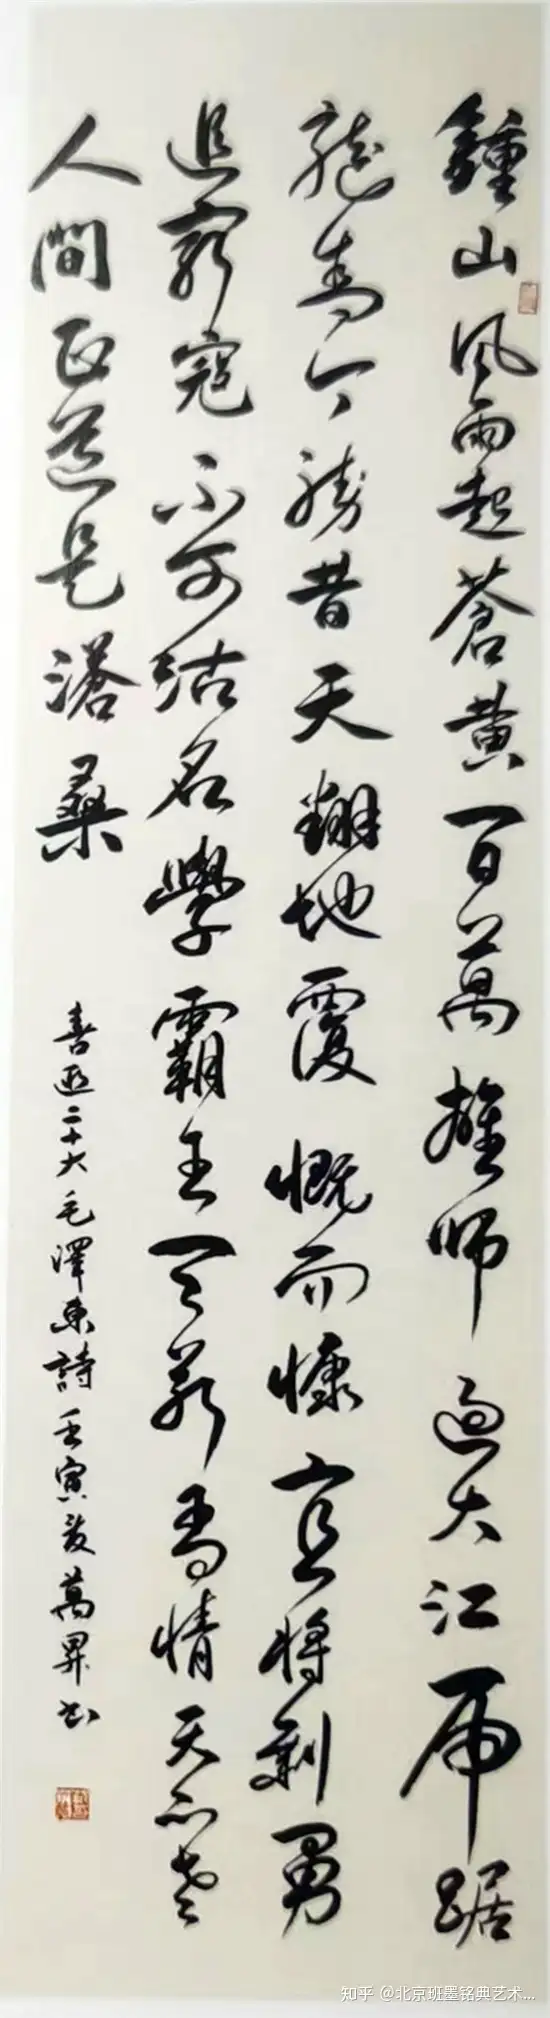 鍾山風雨起蒼黃百萬雄師過大江虎踞
龍盤今勝昔天翻地覆慨而慷宜將剩勇
追窮寇不可沽名學霸王天若有情天亦老
人間正道是滄桑
喜迎二十大毛澤東詩壬寅夏萬昇书
知乎 @北京班墨铭典艺术...